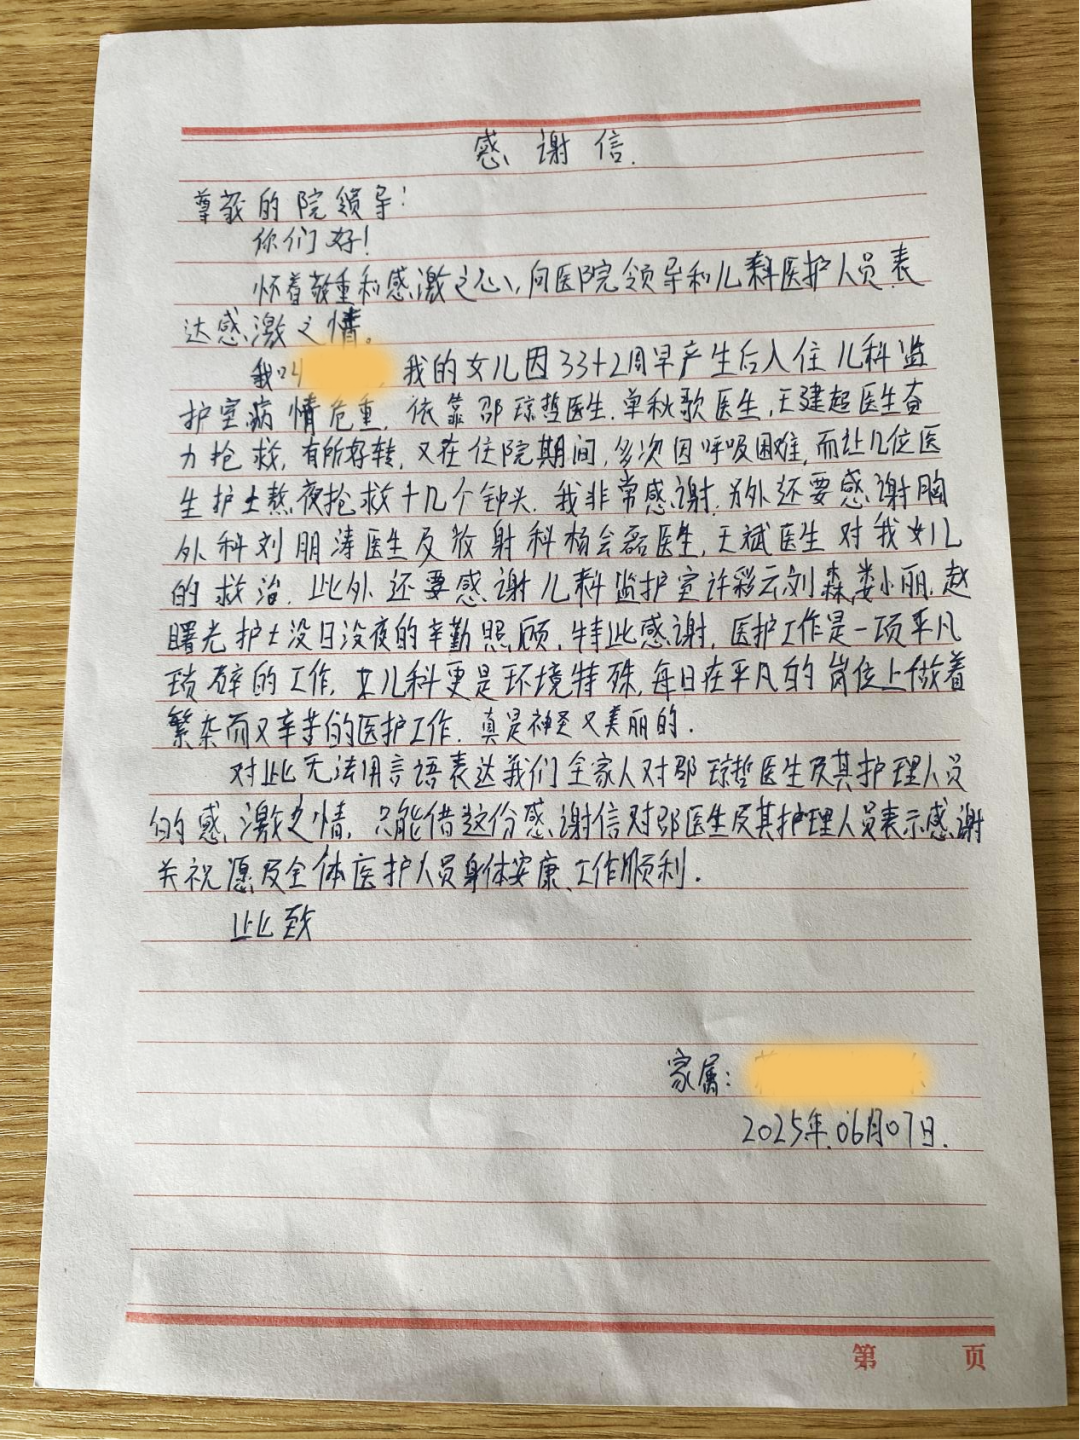 感谢信.
尊敬的院领导!
你们好!
怀着敬重和感激之心,向医院领导和儿科医护人员表
达感激之情。
我叫 , 我的女儿因33+2周早产生后入住儿科监
护室病情危重, 依靠邵琼哲医生.单秋歌医生,王建超医生奋
力抢救,有所好转,又在住院期间,多次因呼吸困难,而让几位医
生护士熬夜抢救十几个钟头.我非常感谢.另外还要感谢胸
外科刘朋涛医生及放射科杨会磊医生,王斌医生对我女儿
的救治.此外还要感谢儿科监护室许彩云刘森,娄小丽,赵
曙光护士没日没夜的辛勤照顾,特此感谢,医护工作是一项平凡
琐碎的工作,女儿科更是环境特殊,每日在平凡的岗位上做着
繁杂而又辛苦的医护工作.真是神圣又美丽的.
对此无法用言语表达我们全家人对邵琼哲医生及其护理人员
的感激之情,只能借这份感谢信对邵医生及其护理人员表示感谢
并祝愿及全体医护人员身体安康、工作顺利.
此致
家属:
2025年.06月07日.
第 页